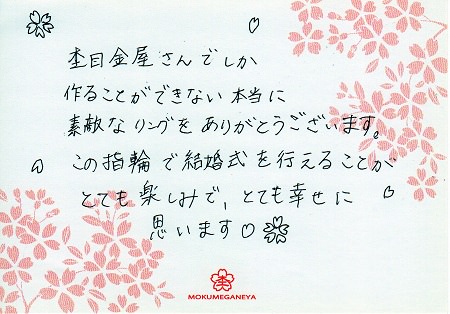 杢目金屋さんでしか
作ることができない本当に
素敵なリングをありがとうございます。
この指輪で結婚式を行えることが
とても楽しみで、とても幸せに
思います♡
MOKUMEGANEYA